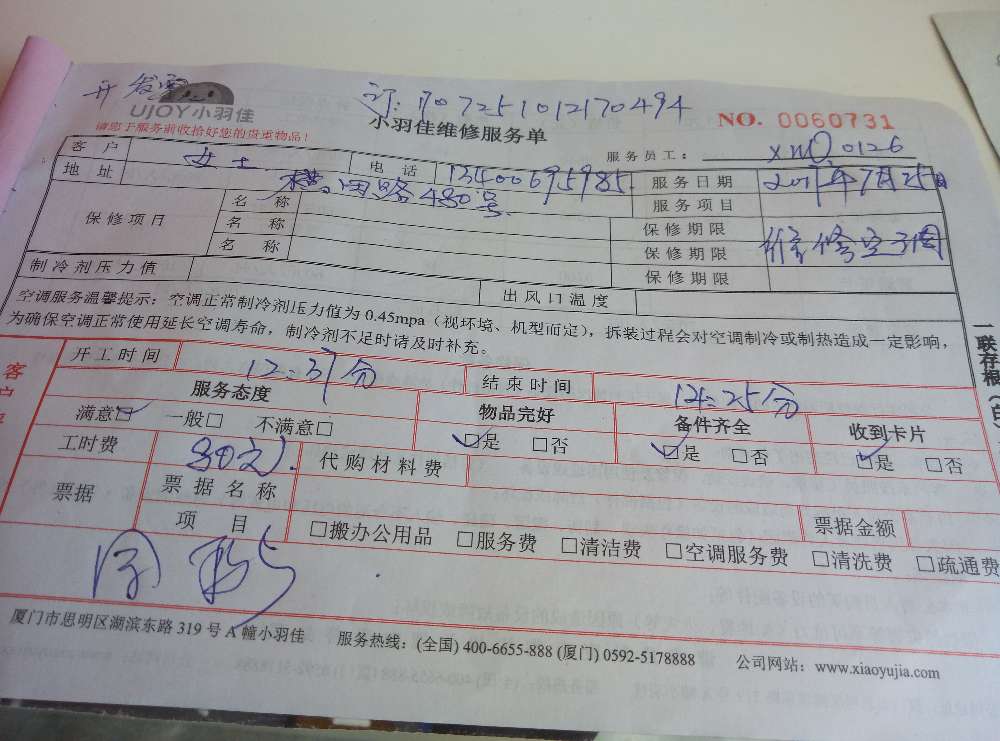 开发票
UJOY小羽佳
订:707251012170494
请您于服务前收拾好您的贵重物品!
小羽佳维修服务单
NO. 0060731
服务员工: XM00126
客户 女士 电话 13400695985 服务日期 2017年7月25日
地址 路480号 服务项目
保修项目 名称 保修期限
名称 保修期限
名称 保修期限
维修空调
制冷剂压力值 出风口温度
空调服务温馨提示: 空调正常制冷剂压力值为 0.45mpa (视环境、机型而定), 拆装过程会对空调制冷或制热造成一定影响,
为确保空调正常使用延长空调寿命, 制冷剂不足时请及时补充。
一联存根
开工时间 12:37分 结束时间 12:25分
客户
服务态度 物品完好 备件齐全 收到卡片
满意□ 一般□ 不满意□ □是 □否 □是 □否 □是 □否
工时费 80元 代购材料费
票据 票据名称 票据金额
项目 □搬办公用品 □服务费 □清洁费 □空调服务费 □清洗费 □疏通费
厦门市思明区湖滨东路 319 号 A 幢小羽佳 服务热线: (全国) 400-6655-888 (厦门) 0592-5178888 公司网站: www.xiaoyujia.com